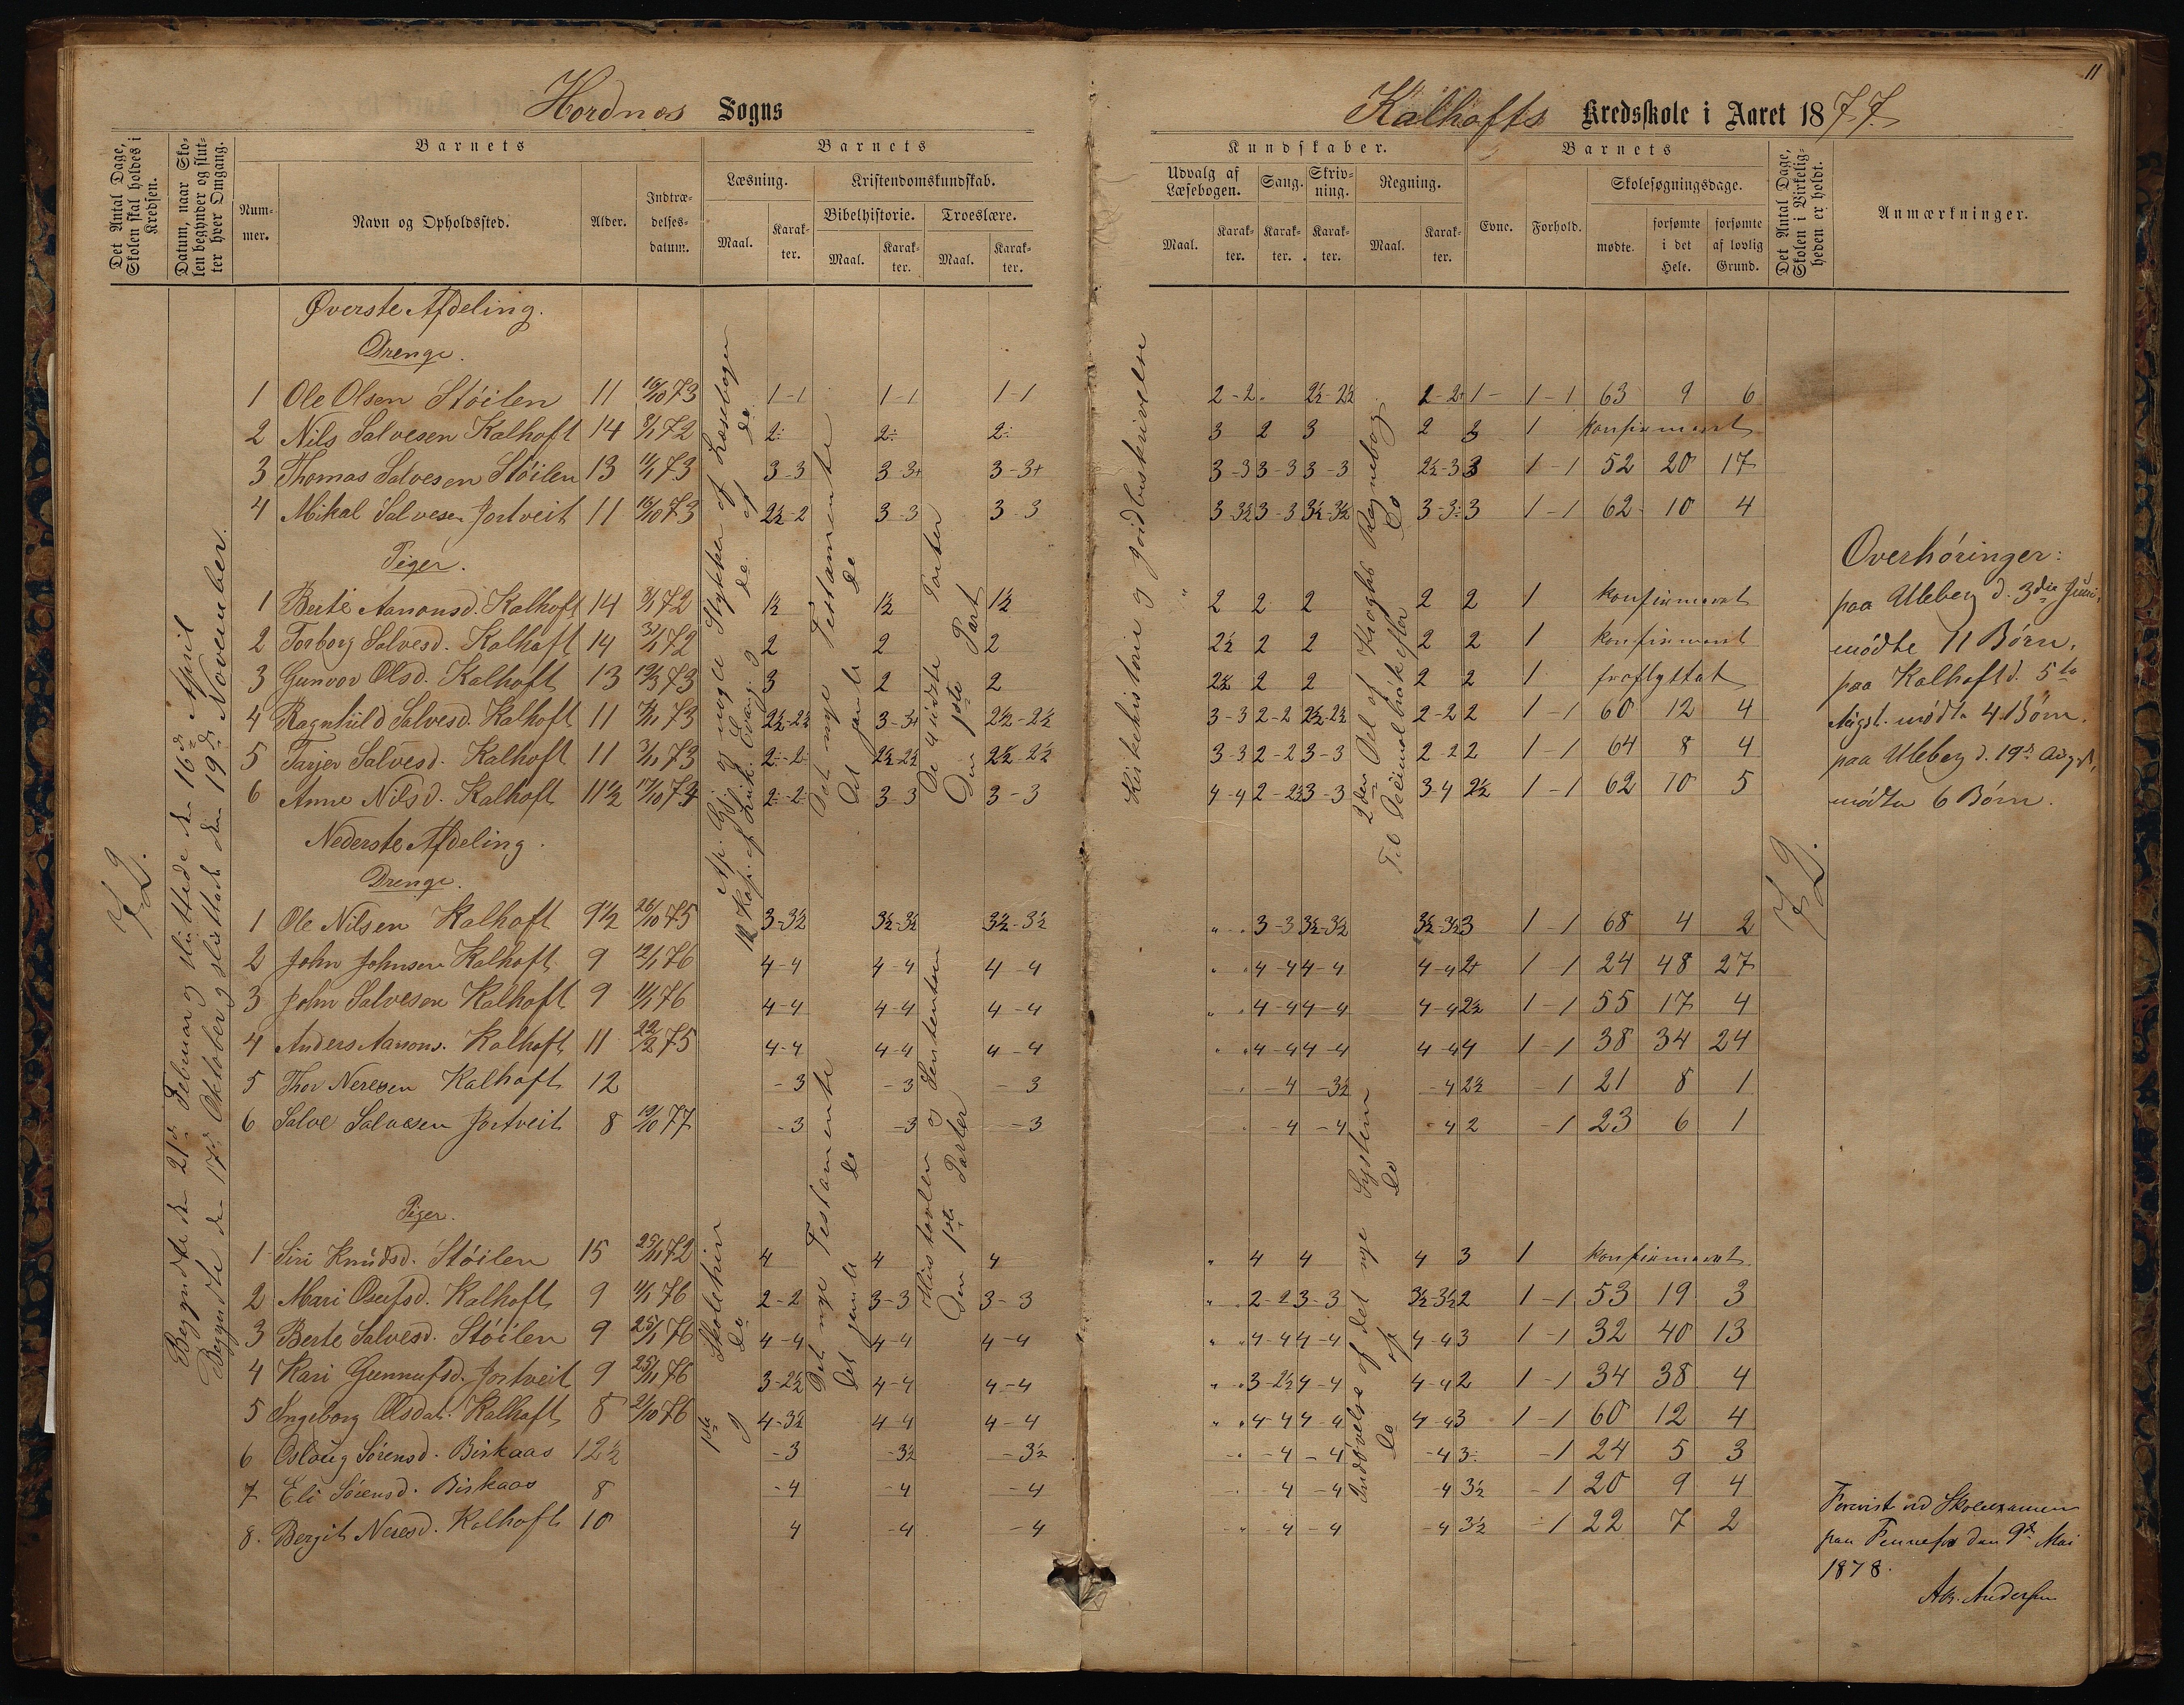 11
Hordnes Sogns
Kalhofts Kredsskole i Aaret 1877.
Det Antal Dage, Skolen skal holdes i Kredsen.
Datum, naar Skolen begynder og slutter hver Omgang.
Barnets
Nummer.
Navn og Opholdssted.
Alder.
Indtrædelsesdatum.
Barnets
Læsning.
Maal.
Karakter.
Kristendomskundskab.
Bibelhistorie.
Maal.
Karakter.
Troeslære.
Maal.
Karakter.
Kundskaber.
Udvalg af Læsebogen.
Maal.
Karakter.
Sang.
Karakter.
Skrivning.
Karakter.
Regning.
Maal.
Karakter.
Barnets
Evne.
Forhold.
Skolesøgningsdage.
mødte.
forsømte i det Hele.
forsømte af lovlig Grund.
Det Antal Dage, Skolen i Virkeligheden er holdt.
Anmærkninger.
72.
Begyndte den 21de Februar og sluttede den 16de April
Begyndte den 17de Oktober og sluttede den 19de November.
Øverste Afdeling.
Drenge.
1 Ole Olsen Stöilen 11 16/10 73 1-1 1-1 1-1 2-2 2½-2½ 2-2+ 1- 1-1 63 9 6
2 Nils Salvesen Kalhoft 14 8/1 72 2÷ 2÷ 2÷ 3 2 3 2 3 1 konfirmeret
3 Thomas Salvesen Stöilen 13 11/1 73 3-3 3-3+ 3-3+ 3-3 3-3 3-3 2½-3 3 1-1 52 20 17
4 Mikal Salvesen Jortveit 11 16/10 73 2½-2 3-3 3-3 3-3½ 3-3 3½-3½ 3-3÷ 3 1-1 62 10 4
Piger.
1 Berte Aanonsd. Kalhoft 14 8/1 72 1½ 1½ 1½ 2 2 2 2 2 1 konfirmeret
2 Torborg Salvesd. Kalhoft 14 31/1 72 2 2 2 2½ 2 2 2 2 1 konfirmeret
3 Gunvor Olsd. Kalhoft 13 19/3 73 3 2 2 2½ 2 2 2 2 1 fraflyttet
4 Ragnhild Salvesd. Kalhoft 11 73 2½-2½ 3-3+ 2½-2½ 3-3 2-2 2½-2½ 2-2 2 1-1 60 12 4
5 Tarjer Salvesd. Kalhoft 11 3/11 73 2÷-2÷ 2½-2½ 2½-2½ 3-3 2-2 3-3 2-2 2 1-1 64 8 4
6 Anne Nilsd. Kalhoft 11½ 17/10 74 2÷-2÷ 3-3 3-3 4-4 2-2½ 3-3 3-4 2½ 1-1 62 10 5
Nederste Afdeling.
Drenge.
1 Ole Nilsen Kalhoft 9½ 26/10 75 3-3½ 3½-3½ 3½-3½ " 3-3 3½-3½ 3½-3½ 3 1-1 68 4 2
2 John Johnsen Kalhoft 9 12/1 76 4-4 4-4 4-4 " 4-4 4-4 4-4 2+ 1-1 24 48 27
3 John Salvesen Kalhoft 9 11/1 76 4-4 4-4 4-4 " 4-4 4-4 4-4 2½ 1-1 55 17 4
4 Anders Aanons. Kalhoft 11 22/2 75 4-4 4-4 4-4 " 4-4 4-4 4-4 4 1-1 38 34 24
5 Thor Neresen Kalhoft 12 -3 -3 -3 -4 -3½ -4 2½ -1 21 8 1
6 Salve Salvesen Jortveit 8 19/10 77 -3 -3 -3 -4 -4 -4 2 -1 23 6 1
Piger.
1 Siri Knudsd. Stöilen 15 25/11 72 4 4 4 " 4 4 4 3 1 konfirmeret
2 Mari Osufsd. Kalhoft 9 11/1 76 2-2 3-3 3-3 " 2-2 3-3 3½-3½ 2 1-1 53 19 3
3 Berte Salvesd. Stöilen 9 25/1 76 4-4 4-4 4-4 " 4-4 4-4 4-4 3 1-1 32 40 13
4 Kari Gunnufsd. Jortveit 9 25/11 76 3-2½ 4-4 4-4 " 3-2½ 4-4 4-4 2 1-1 34 38 4
5 Ingeborg Olsdat. Kalhoft 8 2/10 76 4-3½ 4-4 4-4 " 4-4 4-4 4-4 3 1-1 60 12 4
6 Oslaug Sörensd. Birkaas 12½ -3 -3½ -3½ -4 -4 -4 3÷ -1 24 5 3
7 Eli Sörensd. Birkaas 8 -4 -4 -4 -4 -4 -4 3½ -1 20 9 4
8. Bergit Neresd. Kalhoft 10 4 -4 -4 -4 -4 -4 3½ -1 22 7 2
Ap. Gj. og nogle Stykker af Læsebogen
12 Kap. af Luk. Evang. og do. af do.
Det nye Testamente
Det gamle do
De 4 sidste Parter
Den 1ste Part
1ste Skoletrin
og do
Det nye Testamente
Det gamle do
Hustavlen og Sentensen
Den 1ste Parter
Kirkehistorie og Jordbeskrivelse
2den Del af Kroghs Regnebog
Til Decimalbrøk efter do
Indøvelse af det nye System
do af do
72.
Overhöringer:
paa Uleberg d. 3die Juni,
mödte 11 Börn.
paa Kalhoft d. 5te
Augst. mödte 4 Börn.
paa Uleberg d. 19de Augst,
mödte 6 Börn.
Forevist ved Skoleexamen
paa Fennefos den 9de Mai
1878.
Andersen